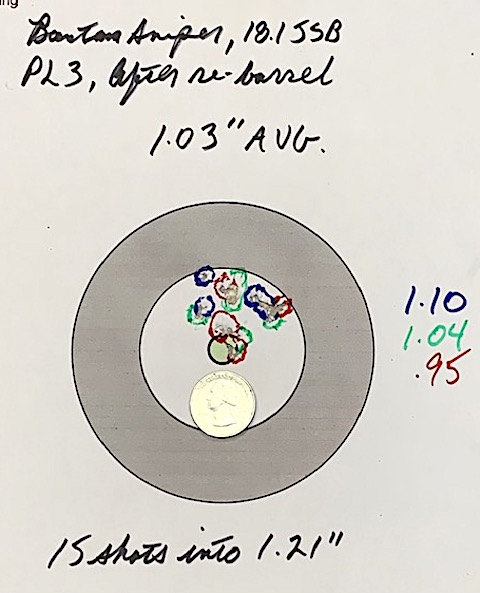 ing
Bantam Sniper, 18.1 JSB
PL3, After re-barrel
1.03" AVG.
1.10
1.04
.95
15 shots into 1.21"